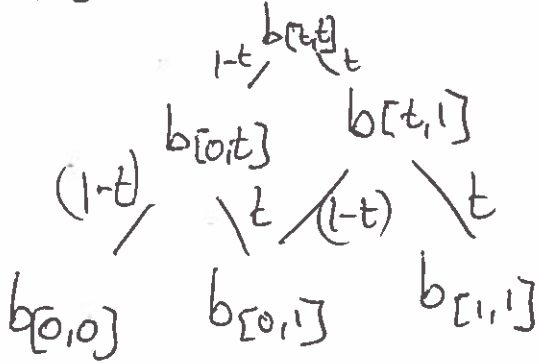 b[t,t]
1-t t
b[0,t] b[t,1]
(1-t) t (1-t) t
b[0,0] b[0,1] b[1,1]